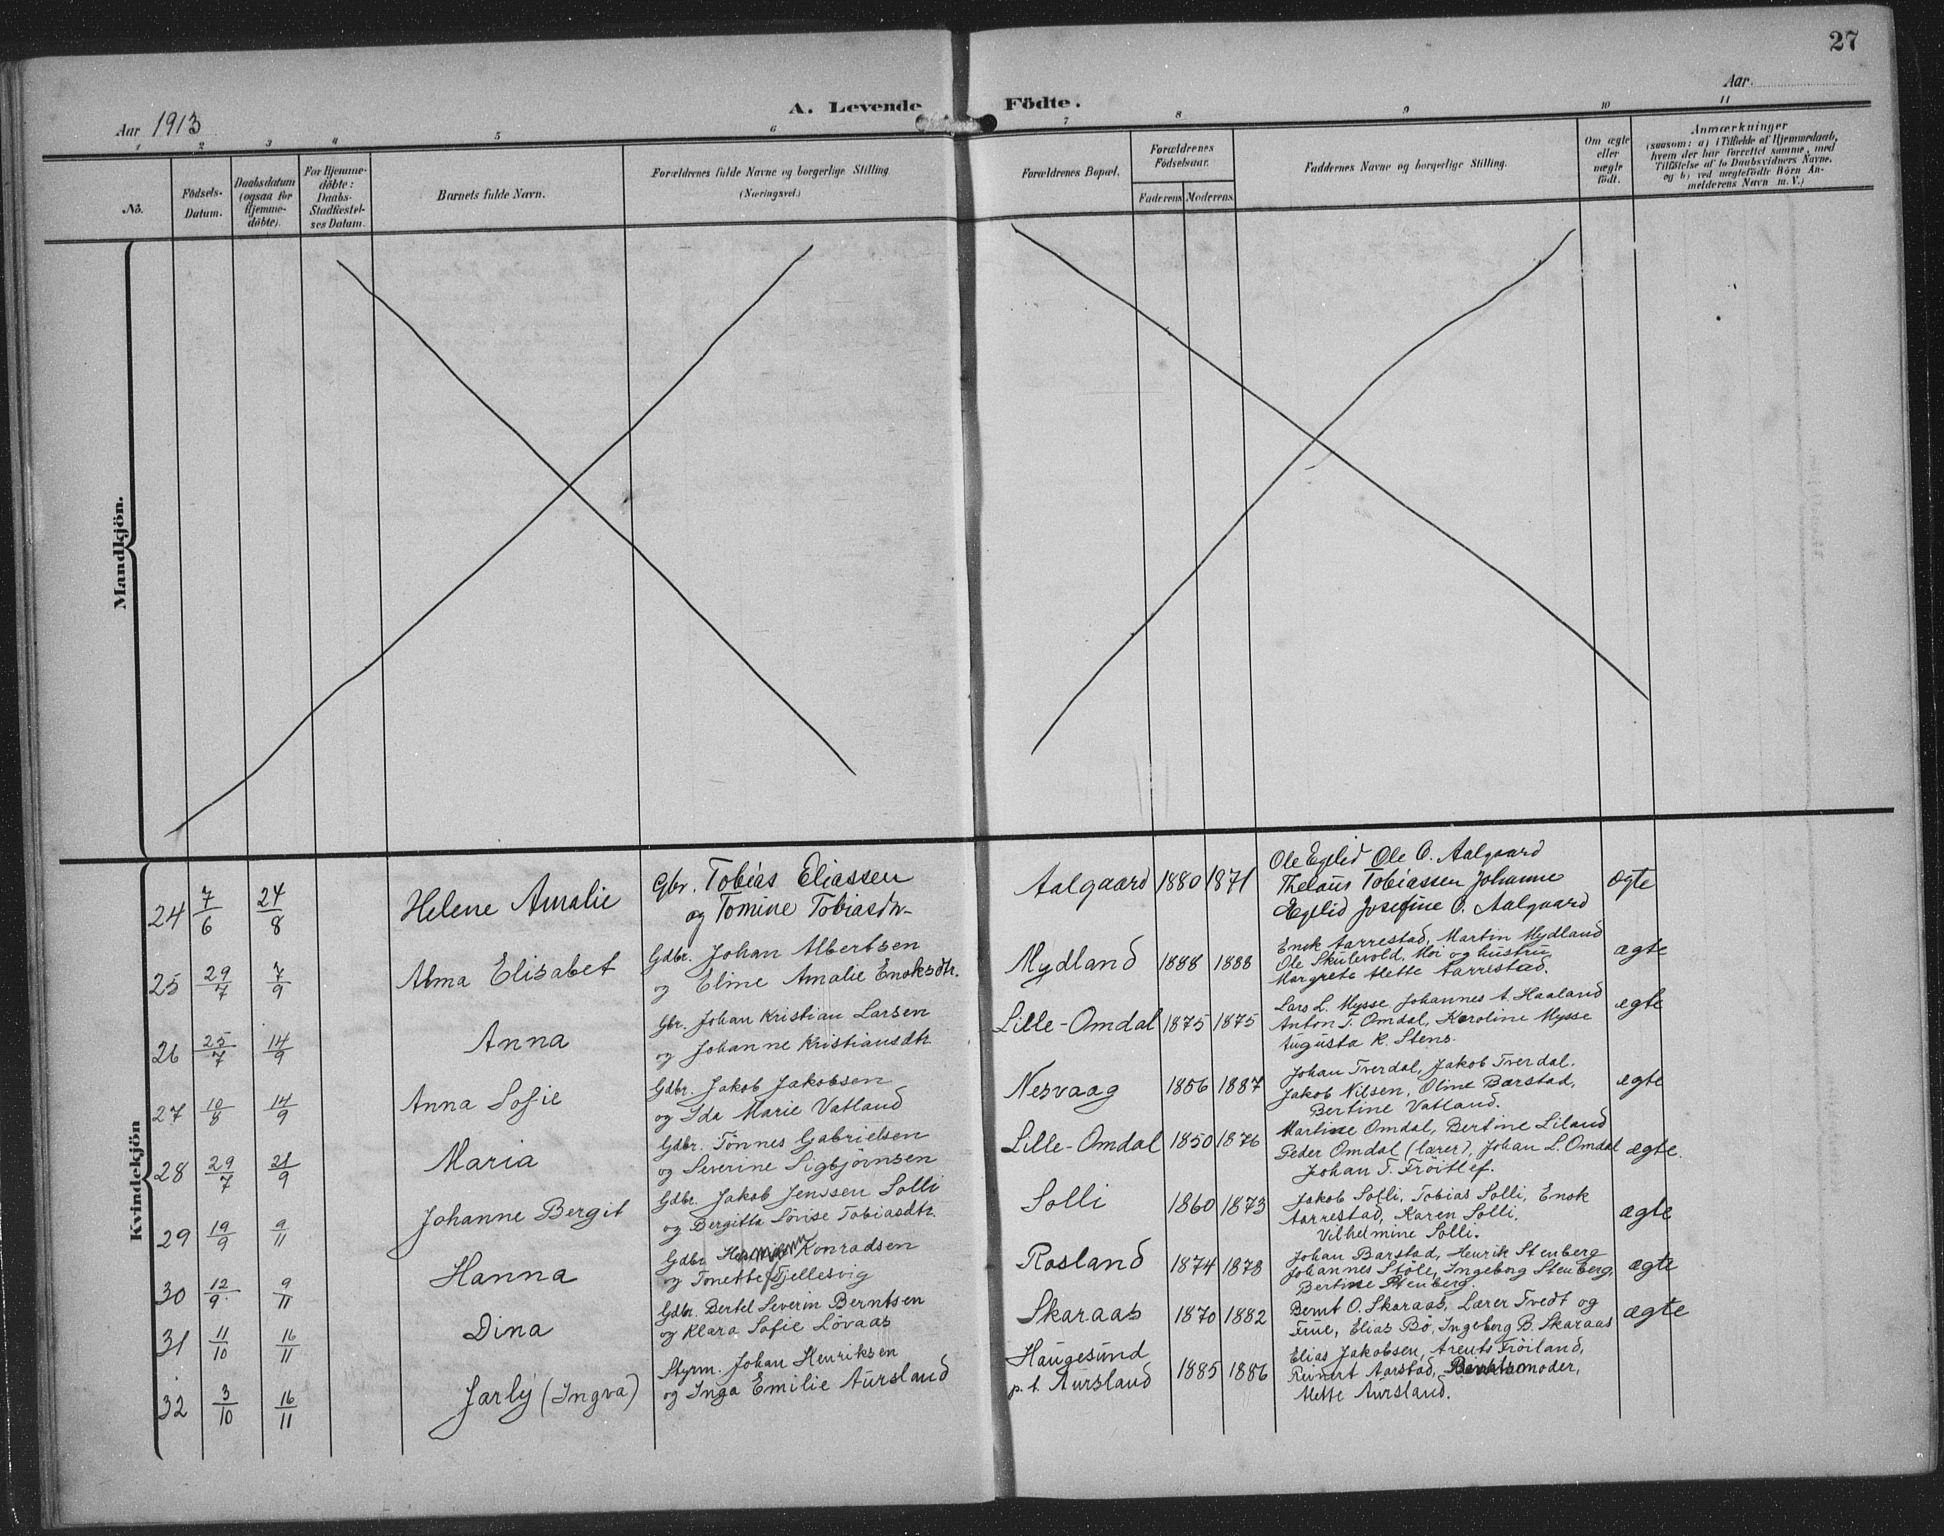 27
A. Levende Födte.
Aar 1913
Aar
1 2 3 4 5 6 7 8 9 10 11
No.
Födsels-
Datum.
Daabsdatum
(ogsaa for
Hjemme-
döbte).
For Hjemme-
döbte:
Daabs-
Stadfæstel-
ses Datum.
Barnets fulde Navn.
Forældrenes fulde Navne og borgerlige Stilling
(Næringsvei.)
Forældrenes Bopæl.
Forældrenes
Födselsaar.
Faderens Moderens
Faddernes Navne og borgerlige Stilling.
Om ægte
eller
uægte
födt.
Anmærkninger
(saasom: a) i Tilfælde af Hjemmedaab,
hvem der har forrettet samme, med
Tilföielse af to Daabsvidners Navne,
og b) ved uægtefödte Börn An-
melderens Navn m. V.)
Mandkjön.
Kvindekjön
24 7/6 24/8 Helene Amalie
Gbr. Tobias Eliassen
og Tomine Tobiasdtr.
Aalgaard 1880 1871
Ole Eglid Ole O. Aalgaard
Thelaus Tobiassen Johanne
Eglid Josefine O. Aalgaard
ægte
25 29/7 7/9 Alma Elisabet
Gdbr. Johan Albertsen
og Eline Amalie Enoksdtr.
Mydland 1888 1888
Enok Aarrestad, Martin Mydland
Ole Skulevold, Moi og hustru,
Margrete Mette Aarrestad.
ægte
26 25/7 14/9 Anna
Gbr. Johan Kristian Larsen
og Johanne Kristiansdtr.
Lille-Omdal 1875 1875
Lars L. Mysse Johannes A. Haaland
Anton T. Omdal, Karoline Mysse
Augusta K. Stens.
ægte
27 10/8 14/9 Anna Sofie
Gdbr. Jakob Jakobsen
og Ida Marie Vatland
Nesvaag 1856 1887
Johan Tverdal, Jakob Tverdal.
Jakob Nilsen, Oline Barstad,
Bertine Vatland.
ægte
28 29/7 21/9 Maria
Gdbr. Tönnes Gabrielsen
og Severine Sigbjörnsen
Lille-Omdal 1850 1876
Martine Omdal, Bertine Liland
Peder Omdal (lærer), Johan L. Omdal
Johan T. Fröitlef.
ægte.
29 19/9 9/11 Johanne Bergit
Gdbr. Jakob Jenssen Solli
og Bergitta Lovise Tobiasdtr.
Solli 1860 1873
Jakob Solli, Tobias Solli, Enok
Aarrestad, Karen Solli,
Vilhelmine Solli.
ægte
30 12/9 9/11 Hanna
Gdbr. Konradsen
og Tonette Fjellesvig
Rosland 1874 1878
Johan Barstad, Henrik Stenberg
Johannes Stöle, Ingeborg Stenberg,
Bertine Stenberg.
ægte
31 11/10 16/11 Dina
Gdbr. Bertel Severin Berntsen
og Klara Sofie Lövaas
Skaraas 1870 1882
Bernt O. Skaraas, Lærer Tvedt og
Frue, Elias Bö, Ingeborg B. Skaraas
ægte
32 3/10 16/11 Jarly (Ingva)
Styrm. Johan Henriksen
og Inga Emilie Aursland
Haugesund
p. t. Aursland
1885 1886
Elias Jakobsen, Arents Fröiland,
Reinert Aarstad, moder,
Mette Aursland.